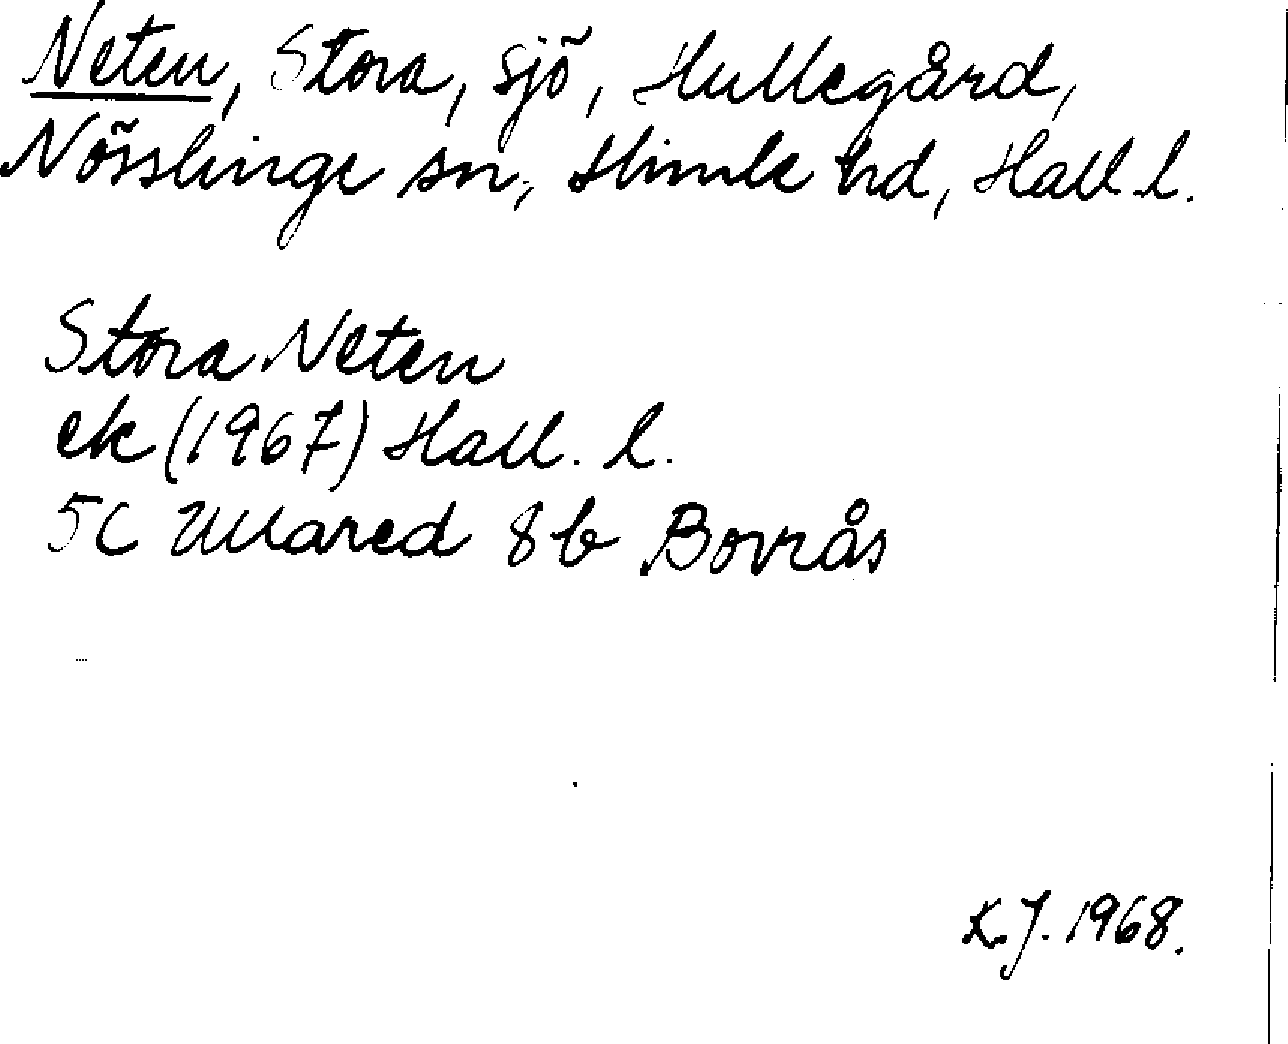 Neten, Stora, sjö, Hullegård,
Nösslinge sn, Himle hd, Hall. l.
Stora Neten
ek (1967) Hall. l.
5C Ullared 8b Bovrås
K.J. 1968.